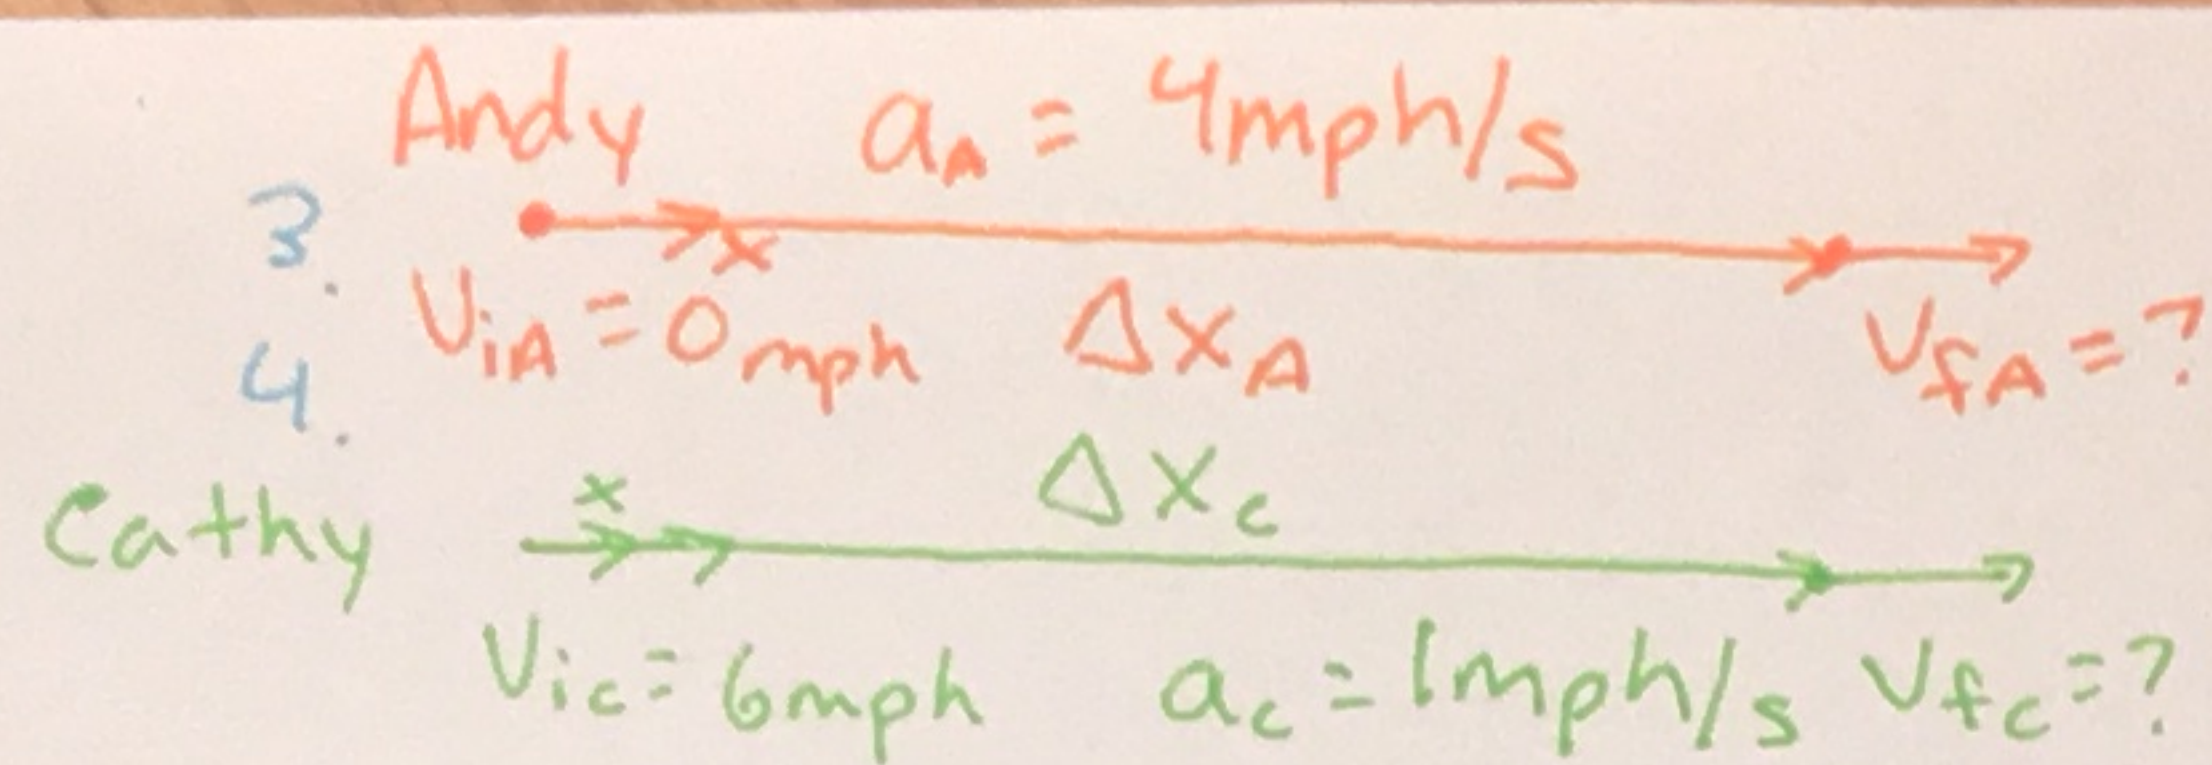 Andy a_A = 4mph/s
3.
x
V_iA = 0mph Δx_A V_fA = ?
4.
Δx_c
x
Cathy
V_ic = 6mph a_c = 1mph/s V_fc = ?